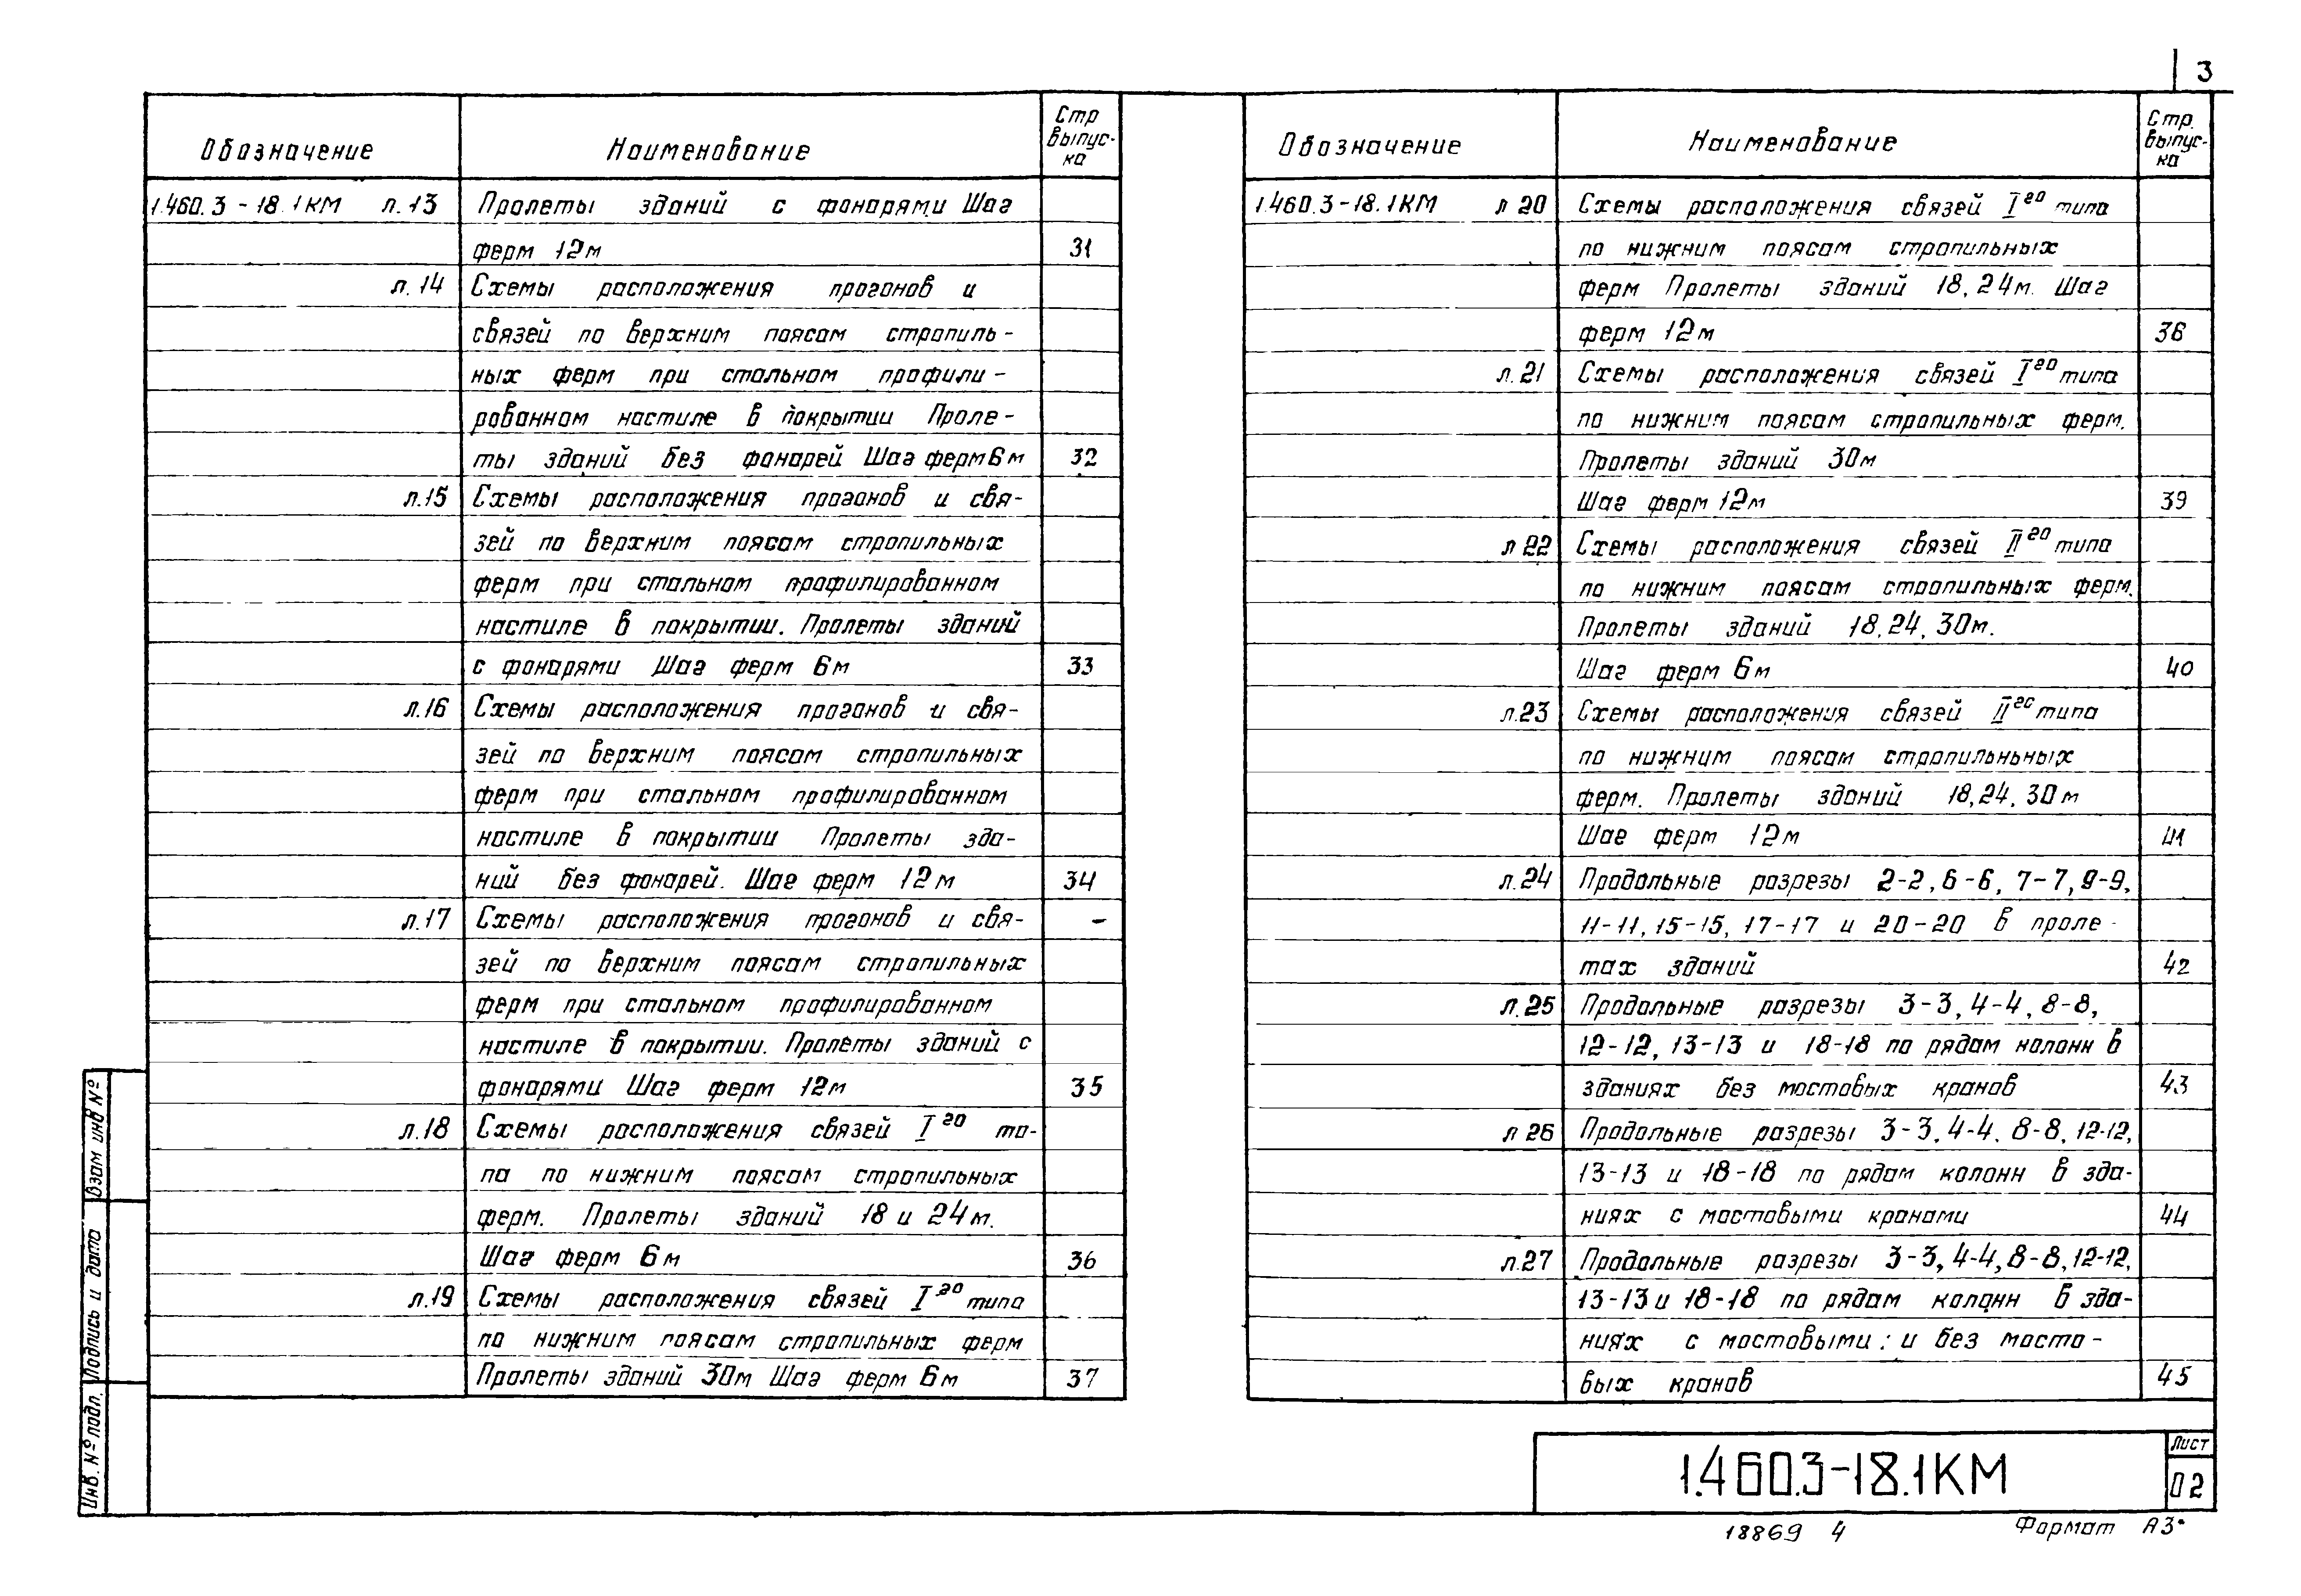 3
Обозначение Наименование Стр выпус-ка
1.460.3-18.1КМ л.13 Пролеты зданий с фонарями Шаг
ферм 12м 31
л.14 Схемы расположения прогонов и
связей по верхним поясам стропиль-
ных ферм при стальном профили-
рованном настиле в покрытии Проле-
ты зданий без фонарей Шаг ферм 6м 32
л.15 Схемы расположения прогонов и свя-
зей по верхним поясам стропильных
ферм при стальном профилированном
настиле в покрытии. Пролеты зданий
с фонарями Шаг ферм 6м 33
л.16 Схемы расположения прогонов и свя-
зей по верхним поясам стропильных
ферм при стальном профилированном
настиле в покрытии Пролеты зда-
ний без фонарей. Шаг ферм 12м 34
л.17 Схемы расположения прогонов и свя- -
зей по верхним поясам стропильных
ферм при стальном профилированном
настиле в покрытии. Пролеты зданий с
фонарями Шаг ферм 12м 35
л.18 Схемы расположения связей I го ти-
па по нижним поясам стропильных
ферм. Пролеты зданий 18 и 24м.
Шаг ферм 6м 36
л.19 Схемы расположения связей I го типа
по нижним поясам стропильных ферм
Пролеты зданий 30м Шаг ферм 6м 37
Обозначение Наименование Стр. выпус-ка
1.460.3-18.1КМ л 20 Схемы расположения связей I го типа
по нижним поясам стропильных
ферм Пролеты зданий 18, 24м. Шаг
ферм 12м 38
л.21 Схемы расположения связей I го типа
по нижним поясам стропильных ферм.
Пролеты зданий 30м
Шаг ферм 12м 39
л 22 Схемы расположения связей II го типа
по нижним поясам стропильных ферм.
Пролеты зданий 18, 24, 30м.
Шаг ферм 6м 40
л.23 Схемы расположения связей II го типа
по нижним поясам стропильньных
ферм. Пролеты зданий 18, 24, 30м
Шаг ферм 12м 41
л.24 Продольные разрезы 2-2, 6-6, 7-7, 9-9,
11-11, 15-15, 17-17 и 20-20 в проле-
тах зданий 42
л.25 Продольные разрезы 3-3, 4-4, 8-8,
12-12, 13-13 и 18-18 по рядам колонн в
зданиях без мостовых кранов 43
л 26 Продольные разрезы 3-3, 4-4, 8-8, 12-12,
13-13 и 18-18 по рядам колонн в зда-
ниях с мостовыми кранами 44
л.27 Продольные разрезы 3-3, 4-4, 8-8, 12-12,
13-13 и 18-18 по рядам колонн в зда-
ниях с мостовыми: и без мосто-
вых кранов 45
Взам инв №
Подпись и дата
Инв. № подл.
1.460.3-18.1КМ
Лист
02
18869 4 Формат А3